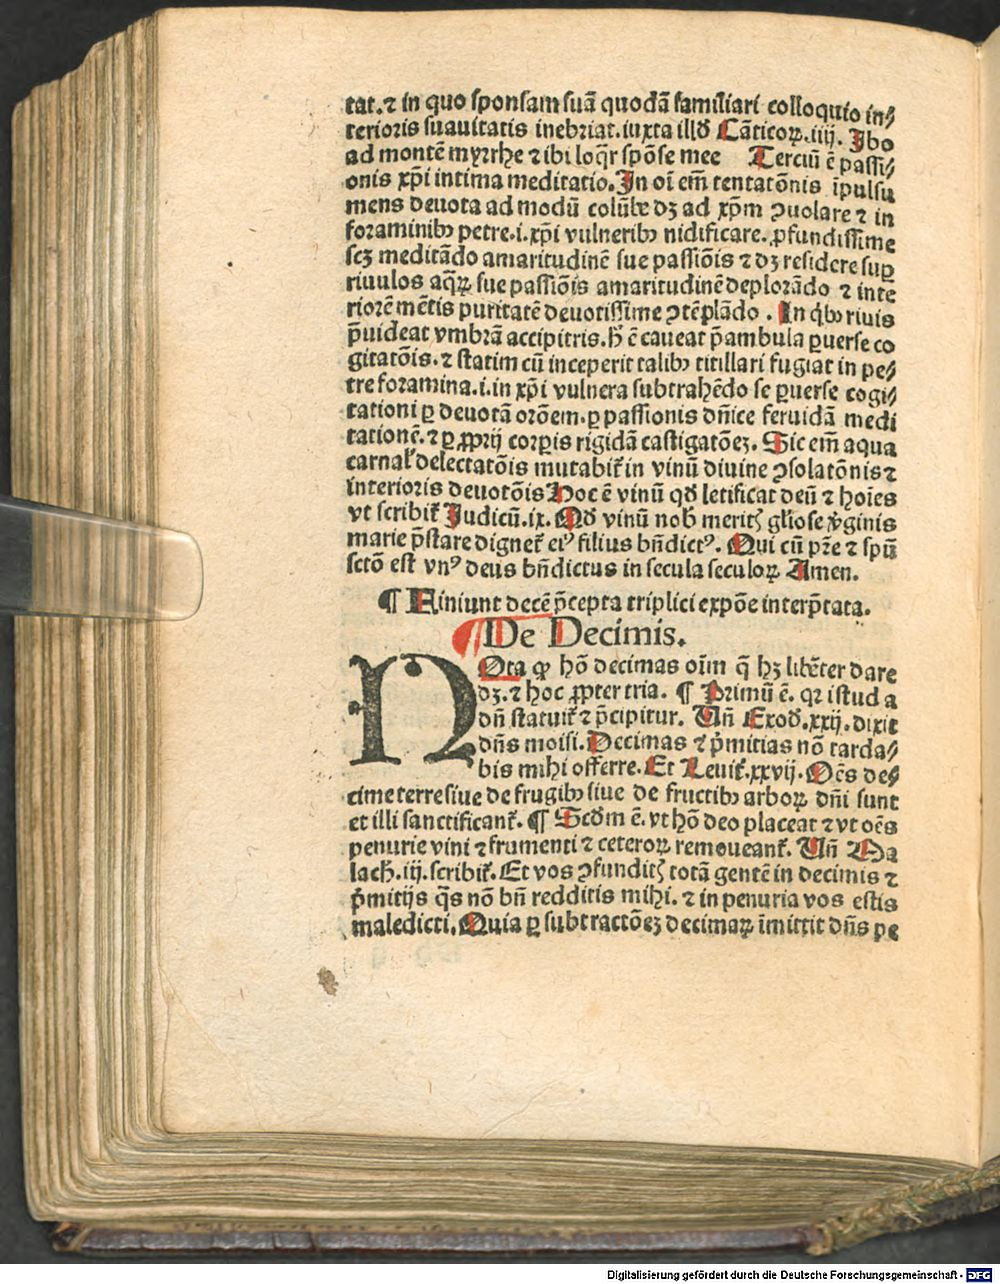 tat. ⁊ in quo sponsam suā quodā familiari colloquio in⸗
terioris suauitatis inebriat. iuxta illđ Cāticoꝝ. iiij. Ibo
ad montē myrrhe ⁊ ibi loq̄r spōse mee Terciū ē passi⸗
onis xp̄i intima meditatio. In oī em̄ tentatōnis īpulsu
mens deuota ad modū colūbe dꝫ ad xp̄m ꝯuolare ⁊ in
foraminibꝰ petre .i. xp̄i vulneribꝰ nidificare. ꝓfundissime
scꝫ meditādo amaritudinē sue passiōis ⁊ dꝫ residere suꝑ
riuulos aq̄ꝝ sue passiōis amaritudinē deplorādo ⁊ inte
riorē mētis puritatē deuotissime ꝯtēplādo. In q̄bꝰ riuis
p̄uideat vmbrā accipitris. h̄ ē caueat p̄ambula ꝑuerse co
gitatōis. ⁊ statim cū inceperit talibꝰ titillari fugiat in pe⸗
tre foramina .i. in xp̄i vulnera subtrahēdo se ꝑuerse cogi⸗
tationi ꝑ deuotā orōem. ꝑ passionis dn̄ice feruidā medi
tationē. ⁊ ꝑ ꝓprij corpis rigidā castigatōeꝫ. Sic em̄ aqua
carnal̓ delectatōis mutabit̄ in vinū diuine ꝯsolatōnis ⁊
interioris deuotōis Hoc ē vinū qđ letificat deū ⁊ hoīes
vt scribit̄ Judicū. ix. Qđ vinū nob̄ meritꝭ gl̓iose v̓ginis
marie p̄stare dignet̄ eiꝰ filius bn̄dictꝰ. Qui cū pr̄e ⁊ spū
sctō est vnꝰ deus bn̄dictus in secula seculoꝝ Amen.
¶ Finiunt decē p̄cepta triplici expōe interp̄tata.
¶ De Decimis.
Nota ꝙ hō decimas oīm q̄ hꝫ libēter dare
dꝫ. ⁊ hoc ꝓpter tria. ¶ Primū ē. qꝛ istud a
dn̄ statuit̄ ⁊ p̄cipitur. Vn̄ Exođ. xxij. dixit
dn̄s moisi. Decimas ⁊ p̓mitias nō tarda⸗
bis mihi offerre. Et Leuit̄. xxvij. Oēs de⸗
cime terre siue de frugibꝰ siue de fructibꝰ arboꝝ dn̄i sunt
et illi sanctificant̄. ¶ Scđm ē. vt hō deo placeat ⁊ vt oēs
penurie vini ⁊ frumenti ⁊ ceteroꝝ remoueant̄. Vn̄ Ma
lach̄. iij. scribit̄. Et vos ꝯfunditꝭ totā gentē in decimis ⁊
p̓mitijs q̄s nō bn̄ redditis mihi. ⁊ in penuria vos estis
maledicti. Quia ꝑ subtractōeꝫ decimaꝝ īmittit dn̄s pe
Digitalisierung gefördert durch die Deutsche Forschungsgemeinschaft - DFG